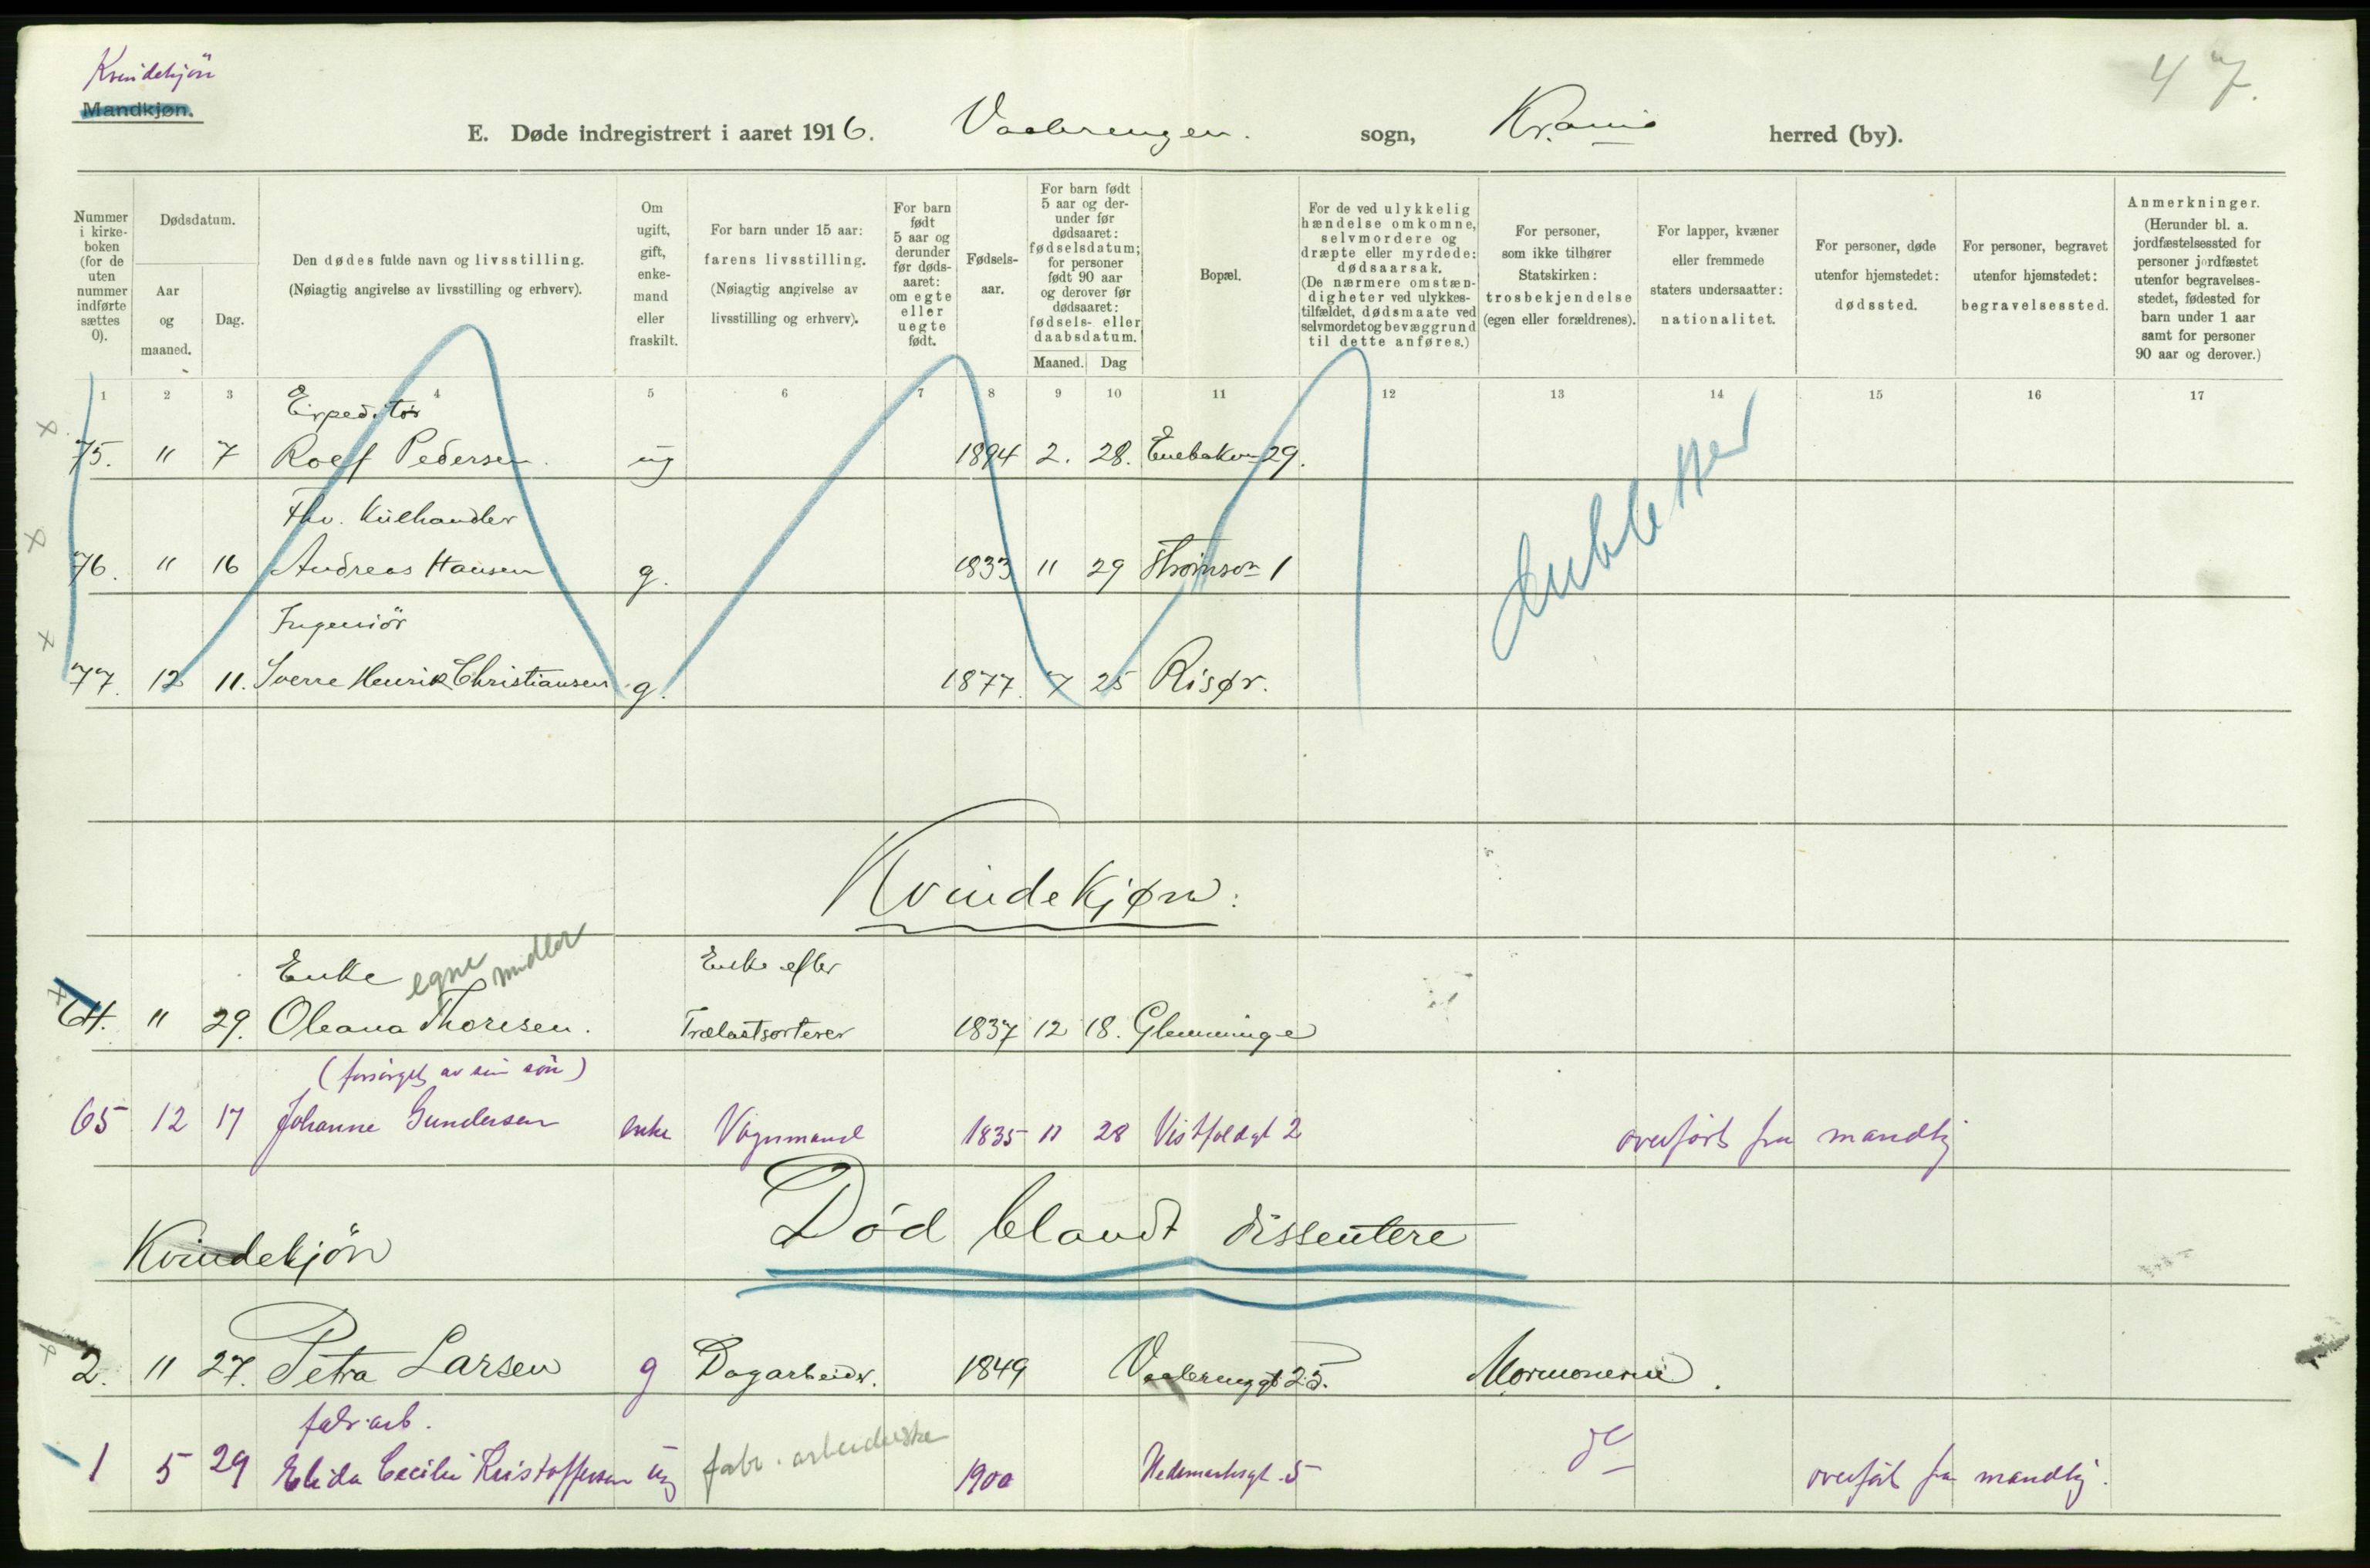 Kvindekjön
Mandkjøn.
47.
E. Døde indregistrert i aaret 1916. Vaalerengen. sogn, Kr.ania herred (by).
Nummer i kirkeboken (for de uten nummer indførte sættes 0).
Dødsdatum.
Aar og maaned.
Dag.
Den dødes fulde navn og livsstilling.
(Nøiagtig angivelse av livsstilling og erhverv).
Om ugift, gift, enkemand eller fraskilt.
For barn under 15 aar: farens livsstilling.
(Nøiagtig angivelse av livsstilling og erhverv).
For barn født 5 aar og derunder før dødsaaret: om egte eller uegte født.
Fødselsaar.
For barn født 5 aar og derunder før dødsaaret: fødselsdatum; for personer født 90 aar og derover før dødsaaret: fødsels- eller daabsdatum.
Maaned. Dag
Bopæl.
For de ved ulykkelig hændelse omkomne, selvmordere og dræpte eller myrdede: dødsaarsak.
(De nærmere omstændigheter ved ulykkestilfældet, dødsmaate ved selvmordet og bevæggrund til dette anføres.)
For personer, som ikke tilhører Statskirken: trosbekjendelse (egen eller forældrenes).
For lapper, kvæner eller fremmede staters undersaatter: nationalitet.
For personer, døde utenfor hjemstedet: dødssted.
For personer, begravet utenfor hjemstedet: begravelsessted.
Anmerkninger.
(Herunder bl. a. jordfæstelsessted for personer jordfæstet utenfor begravelsesstedet, fødested for barn under 1 aar samt for personer 90 aar og derover.)
1 2 3 4 5 6 7 8 9 10 11 12 13 14 15 16 17
Expeditör
75. " 7 Rolf Pedersen. ug 1894 2. 28. Enebakvn 29.
Fhv. Kulhandler
76. " 16 Andreas Hansen g. 1833 11 29 Strömsvn 1
Ingeniör
77. 12 11. Sverre Henrik Christiansen g. 1877. 7 25 Risør.
dubletter
Kvindekjøn:
Enke egne midler Enke efter
64. " 29. Oleana Thoresen. Trælastsorterer 1837 12 18. Glemminge
(forsörget av sin sön)
65 12 17 Johanne Gundersen enke Vognmand 1835 11 28 Vestfoldgt 2 overfört fra mandkj
Död blandt dissentere
Kvindekjön
2. 11 27. Petra Larsen g Dagarbeider. 1849 Vaalerenggt 25. Mormonerne.
fabr.arb.
1 5 29 Elida Cecilie Kristoffersen ug fabr. arbeiderske 1900 Hedemarksgt. 5 do overfört fra mandkj.